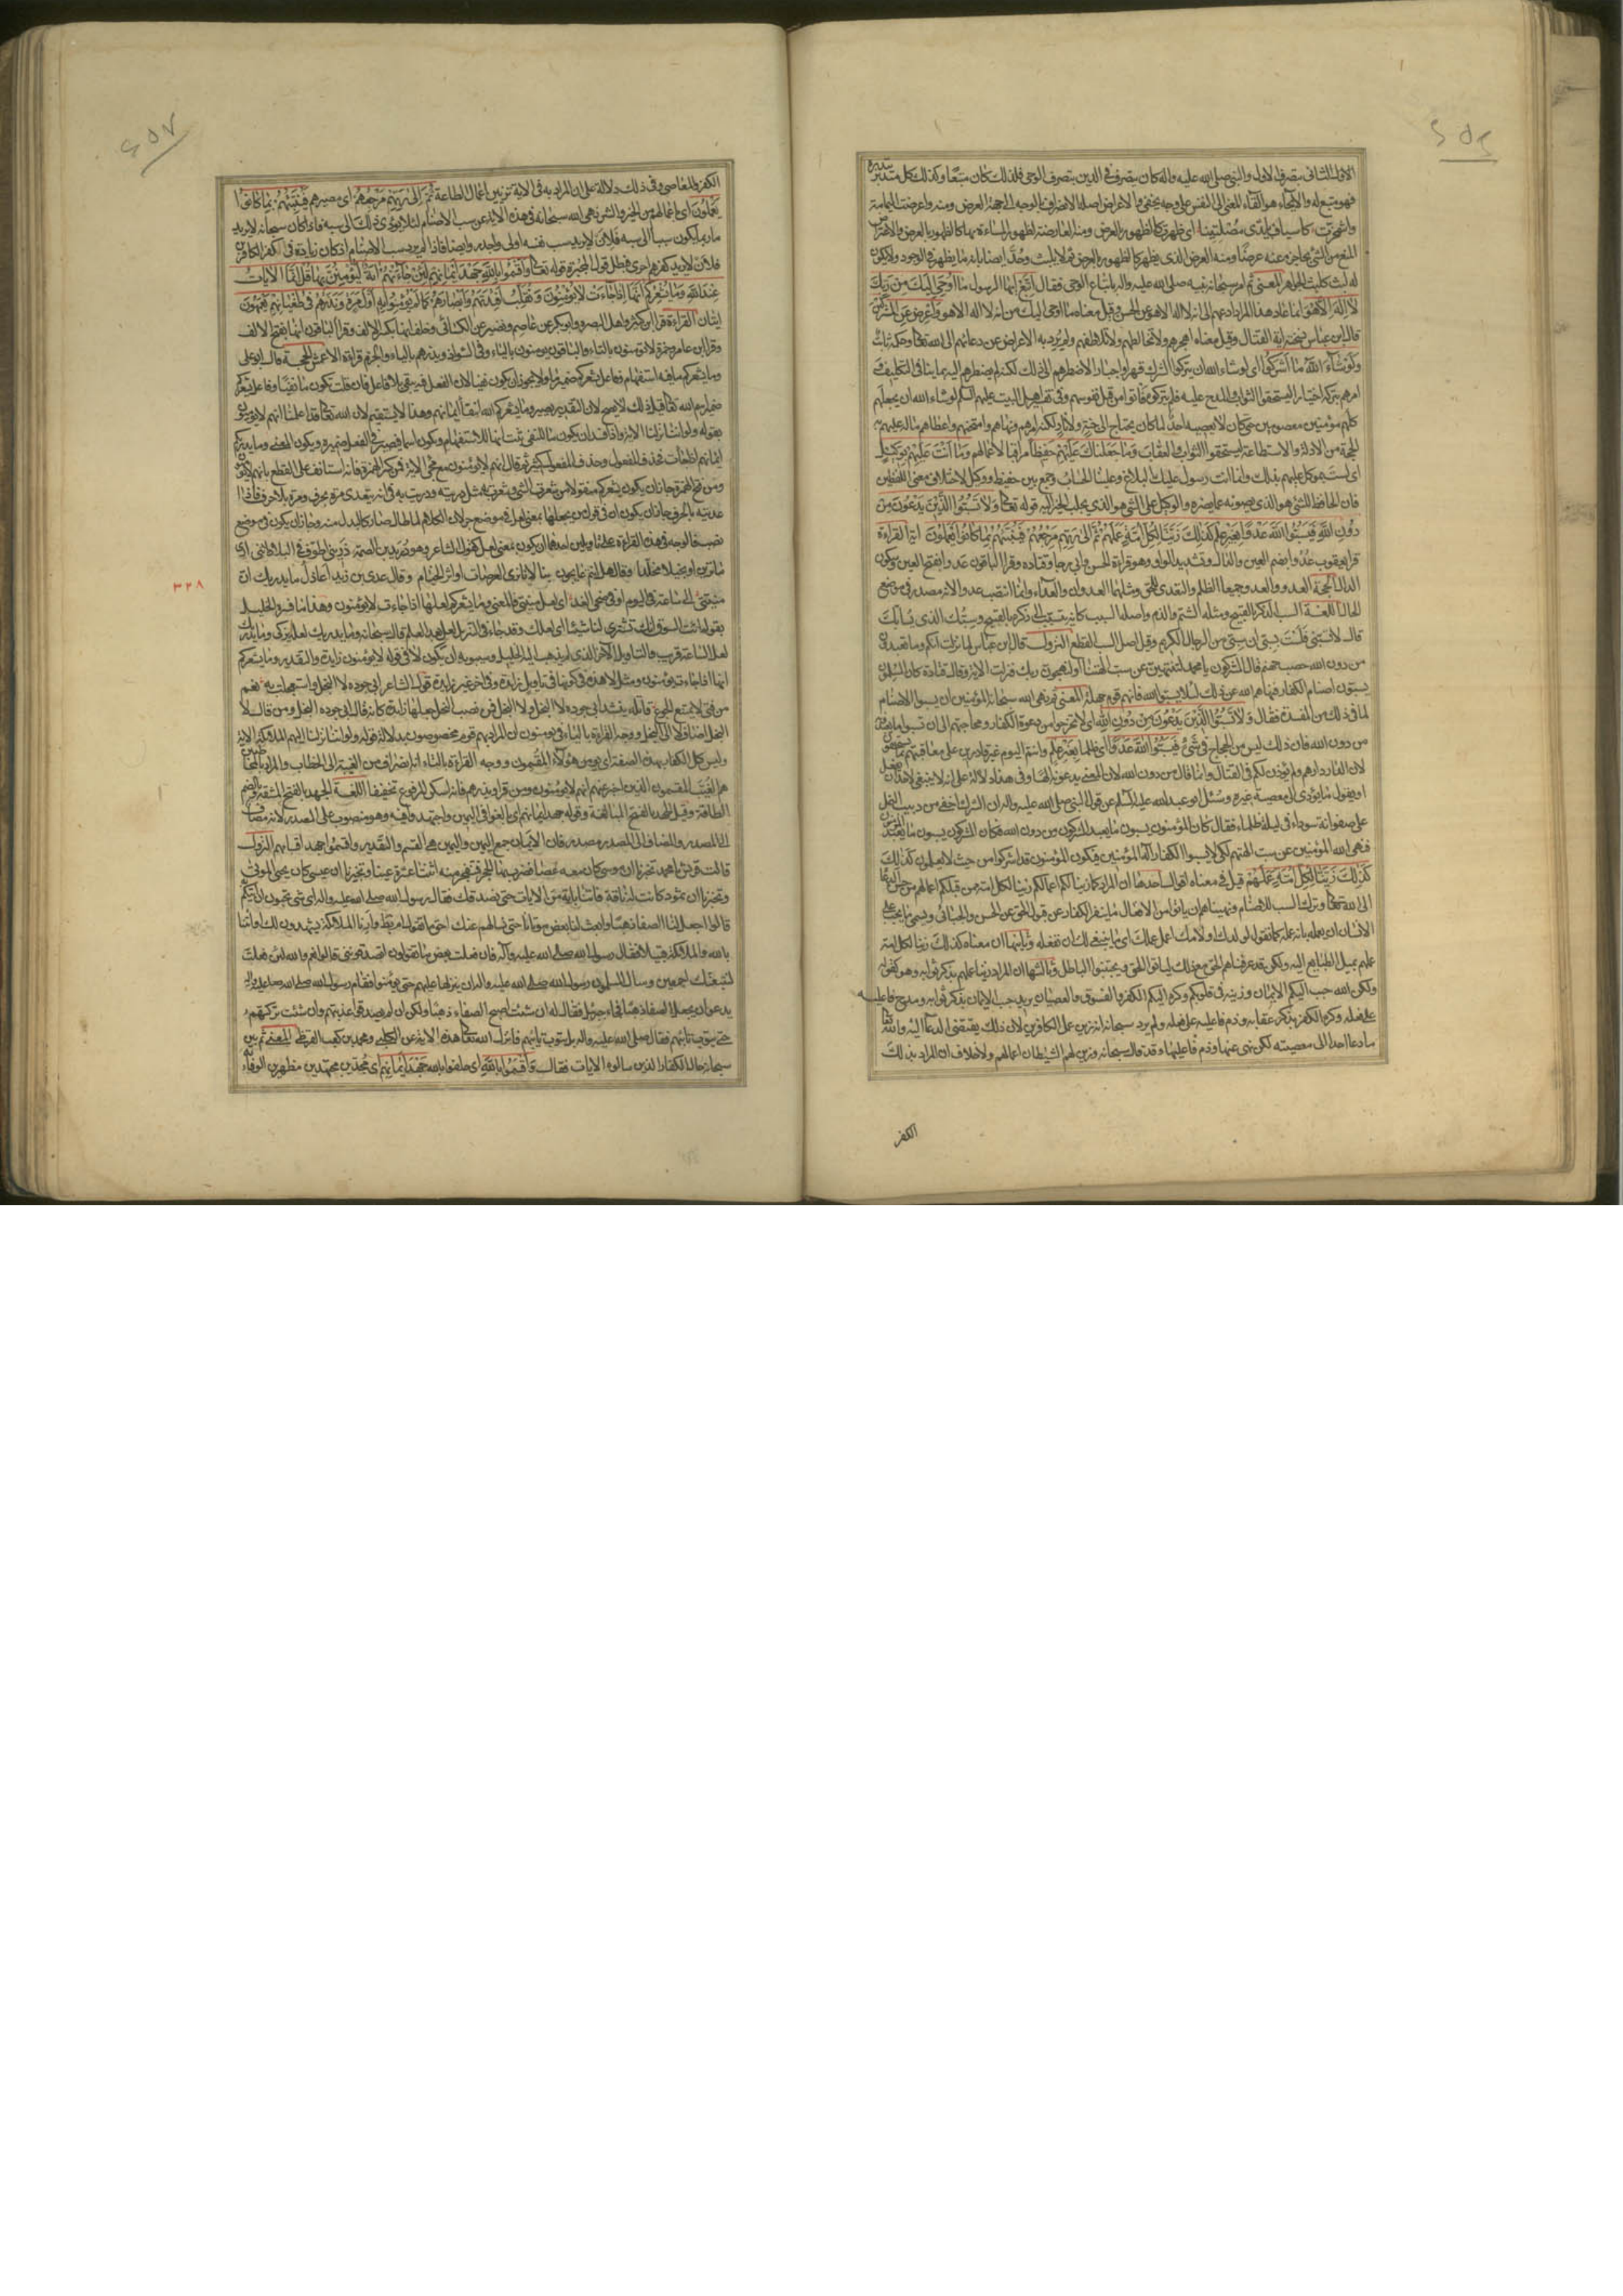 الاول الثانى بتصرف الاول والنبى صلى الله عليه واله كان يتصرف فى الدين بتصرف الوحى فلذلك كان متبعا وكذلك كل متدبر بتدبير
فهو متبع له والايحاء هو القاء المعنى الى النفس على وجه يخفى والاعراض اصله الانصراف بالوجه الى جهة العرض ومنه واعرضت اليمامة
واشمخرت كاسياف بايدى مصلتينا اى ظهرت كالظهور بالعرض ومنه المعارضة لظهور المساواة بها كالظهور بالعرض والاعتراض
المنع من الشئ الحاجز عنه عرضا ومنه العرض الذى يظهر كالظهور بالعرض ثم لا يلبث وحد ايضا بانه ما يظهر فى الوجود ولا يكون
له لبث كلبث الجواهر المعنى ثم امر سبحانه نبيه صلى الله عليه واله باتباع الوحى فقال اتبع ايها الرسول ما اوحى اليك من ربك
لا اله الا هو انما اعاد هذا المراد ادعهم الى انه لا اله الا هو عن الحسن وقيل معناه ما اوحى اليك من انه لا اله الا هو واعرض عن المشركين
قال ابن عباس نسخته اية القتال وقيل معناه اهجرهم ولا تخالطهم ولا تلاطفهم ولم يرد به الاعراض عن دعائهم الى الله تعالى وحكمه ثابت
ولو شاء الله ما اشركوا اى لو شاء الله ان يتركوا الشرك قهرا واجبارا لاضطرهم الى ذلك لكنه لم يضطرهم اليه بما ينافى التكليف
امرهم بتركه اختيارا ليستحقوا الثواب والمدح عليه فلم يتركوه فاتوا من قبل نفوسهم وفى تفسير اهل البيت عليهم السلم لو شاء الله ان يجعلهم
كلهم مؤمنين معصومين حتى كان لا يعصيه احد لما كان يحتاج الى جنة ولا نار ولكنه امرهم ونهاهم وامتحنهم واعطاهم ما له عليهم به
الحجة من الالة والاستطاعة ليستحقوا الثواب والعقاب وما جعلناك عليهم حفيظا مراقبا لاعمالهم وما انت عليهم بوكيل
اى لست بموكل عليهم بذلك وانما انت رسول عليك البلاغ وعلينا الحساب وجمع بين حفيظ ووكيل لاختلاف معنى اللفظين
فان الحافظ للشئ هو الذى يصونه عما يضره والوكيل على الشئ هو الذى يجلب الخير اليه قوله تعالى ولا تسبوا الذين يدعون من
دون الله فيسبوا الله عدوا بغير علم كذلك زينا لكل امة عملهم ثم الى ربهم مرجعهم فينبئهم بما كانوا يعملون اية القراءة
قرا يعقوب عدوا بضم العين والدال وتشديد الواو وهو قراءة الحسن وابى رجا وقتاده وقرا الباقون عدوا بفتح العين وسكون
الدال الحجة العدو والعدو جميعا الظلم والتعدى للحق ومثلهما العدوان والعداء وانما انتصب عدوا لانه مصدر فى موضع
الحال اللغة السب الذكر بالقبيح ومثله الشتم والذم واصله السبب كانه يتسبب الى ذكره بالقبيح وسبك الذى يسابك
قال لا تسبننى فلست بسبى ان سبى من الرجال الكريم وقيل اصل السب القطع النزول قال ابن عباس لما نزلت انكم وما تعبدون
من دون الله حصب جهنم قال المشركون يا محمد لتنتهين عن سب الهتنا او لنهجون ربك فنزلت الاية وقال قتادة كان المسلمون
يسبون اصنام الكفار فنهاهم الله عن ذلك لئلا يسبوا الله فانهم قوم جهلة المعنى ثم نهى الله سبحانه المؤمنين ان يسبوا الاصنام
لما فى ذلك من المفسدة فقال ولا تسبوا الذين يدعون من دون الله اى لا تخرجوا من دعوة الكفار ومحاجتهم الى ان تسبوا ما يعبدون
من دون الله فان ذلك ليس من الحجاج فى شئ فيسبوا الله عدوا اى ظلما بغير علم وانتم اليوم غير قادرين على معاقبتهم بما يستحقون
لان الدار دارهم ولم يؤذن لكم فى القتال وانما قال من دون الله لان المعنى يدعونه الها وفى هذا دلالة على انه لا ينبغى لاحد ان يفعل
او يقول ما يؤدى الى معصية غيره وسئل ابو عبد الله عليه السلام عن قول النبى صلى الله عليه واله ان الشرك اخفى من دبيب النمل
على صفوانة سوداء فى ليلة ظلماء فقال كان المؤمنون يسبون ما يعبد المشركون من دون الله فكان المشركون يسبون ما يعبد المؤمنون
فنهى الله المؤمنين عن سب الهتهم لكى لا يسبوا الكفار اله المؤمنين فيكون المؤمنون قد اشركوا من حيث لا يعلمون كذلك
كذلك زينا لكل امة عملهم قيل فى معناه اقوال احدها ان المراد كما زينا لكم اعمالكم زينا لكل امة من قبلكم اعمالهم من حسن الدعاء
الى الله تعالى وترك السب للاصنام ونهيناهم ان ياتوا من الافعال ما ينفر الكفار عن قبول الحق عن الحسن والجبائى ويسمى ما يجب على
الانسان ان يعمله بانه عمله كما تقول لولدك او لامك اعمل عملك اى ما ينبغى لك ان تفعله وثانيها ان معناه كذلك زينا لكل امة
عملهم بميل الطباع اليه ولكن قد عرفناهم الحق مع ذلك لياتوا الحق ويجتنبوا الباطل وثالثها ان المراد زينا عملهم بذكر ثوابه وهو كقوله
ولكن الله حبب اليكم الايمان وزينه فى قلوبكم وكره اليكم الكفر والفسوق والعصيان يريد حبب الايمان بذكر ثوابه ومدح فاعليه
على فعله وكره الكفر بذكر عقابه وذم فاعليه على فعله ولم يرد سبحانه انه زين عمل الكافرين لان ذلك يقتضى الدعاء اليه والله تعالى
ما دعا احدا الى معصيته لكن نهى عنها وذم فاعليها وقد قال سبحانه وزين لهم الشيطان اعمالهم ولا خلاف ان المراد بذلك
الكفر
الكفر والمعاصى وفى ذلك دلالة على ان المراد به فى الاية تزيين اعمال الطاعة ثم الى ربهم مرجعهم اى مصيرهم فينبئهم بما كانوا
يعملون اى باعمالهم من الخير والشر نهى الله سبحانه فى هذه الاية عن سب الاصنام لئلا يؤدى ذلك الى سبه فاذا كان سبحانه لا يريد
ما ربما يكون سببا الى سبه فلان لا يريد سب نفسه اولى واجدر وايضا فاذا لم يرد سب الاصنام اذ كان زيادة فى كفر الكافرين
فلان لا يريد كفرهم احرى فبطل قول المجبرة قوله تعالى واقسموا بالله جهد ايمانهم لئن جاءتهم اية ليؤمنن بها قل انما الايات
عند الله وما يشعركم انها اذا جاءت لا يؤمنون ونقلب افئدتهم وابصارهم كما لم يؤمنوا به اول مرة ونذرهم فى طغيانهم يعمهون
ايتان القراءة قرا ابن كثير واهل البصرة وابو بكر عن عاصم ونصير عن الكسائى وخلف انها بكسر الالف وقرا الباقون انها بفتح الالف
وقرا ابن عامر وحمزة لا تؤمنون بالتاء والباقون يؤمنون بالياء وفى الشواذ ويذرهم بالياء والجزم قراءة الاعمش الحجة قال ابو على
وما يشعركم ما فيه استفهام وفاعل يشعركم ضمير ما ولا يجوز ان يكون نفيا لان الفعل فيه يبقى بلا فاعل فان قلت يكون ما نفيا وفاعل يشعركم
ضمير اسم الله تعالى قيل ذلك لا يصح لان التقدير يصير وما يشعركم الله انتفاء ايمانهم وهذا لا يستقيم لان الله تعالى قد اعلمنا انهم لا يؤمنون
بقوله ولو اننا نزلنا الاية واذا فسد ان يكون ما للنفى ثبت انها للاستفهام ويكون اسما فيصير فى الفعل ضميره ويكون المعنى وما يدريكم
ايمانهم اذا جاءت فحذف المفعول وحذف المفعول كثير ثم قال انهم لا يؤمنون مع مجئ الاية فمن كسر الهمزة فانه استانف على القطع بانهم لا يؤمنون
ومن فتح الهمزة جاز ان يكون يشعركم منقولا من شعرت بالشئ وشعرت به مثل دريته ودريت به فى انه يتعدى مرة بحرف ومرة بلا حرف فاذا
عديته بالحرف جاز ان يكون ان فى قول من لم يجعلها بمعنى لعل فى موضع جر لان الكلام لما طال صار كالبدل منه وجاز ان يكون فى موضع
نصب فالوجه فى هذه القراءة على تاويلين احدهما ان يكون بمعنى لعل كقول الشاعر وهو دريد بن الصمة ذرينى اطوف فى البلاد لاننى ارى
ما ترين او بخيلا مخلدا وقال هل انتم عايجون بنا لانا نرى العرصات او اثر الخيام وقال عدى بن زيد اعاذل ما يدريك ان
منيتى الى ساعة فى اليوم او فى ضحى الغد اى لعل منيتى والمعنى وما يشعركم لعلها اذا جاءت لا يؤمنون وهذا ما فسره الخليل
بقوله ائت السوق انك تشترى لنا شيئا اى لعلك وقد جاء فى التنزيل لعل بعد العلم قال سبحانه وما يدريك لعله يزكى وما يدريك
لعل الساعة قريب والتاويل الاخر الذى لم يذهب اليه الخليل وسيبويه ان يكون لا فى قوله لا يؤمنون زايدة والتقدير وما يشعركم
انها اذا جاءت يؤمنون ومثل لا هذه فى كونها فى تاويل زايدة وفى اخر غير زايدة قول الشاعر ابى جوده لا البخل واستعجلت به نعم
من فتى لا يمنع الجوع قاتله ينشد ابى جوده لا البخل ولا البخل فمن نصب البخل جعلها زايدة كانه قال ابى جوده البخل ومن قال لا
البخل اضاف لا الى البخل ووجه القراءة بالياء فى يؤمنون ان المراد بهم قوم مخصوصون بدلالة قوله ولو اننا نزلنا اليهم الملائكة الاية
وليس كل الكفار بهذه الصفة اى لا يؤمن هؤلاء المقسمون ووجه القراءة بالتاء انه انصراف من الغيبة الى الخطاب والمراد بالمخاطبين
هم الغيب المقسمون الذين اخبر عنهم انهم لا يؤمنون ومن قرا ويذرهم فانه اسكن المرفوع تخفيفا اللغة الجهد بالفتح المشقة وبالضم
الطاقة وقيل الجهد بالفتح المبالغة وقوله جهد ايمانهم اى بالغوا فى اليمين واجتهدوا فيه وهو منصوب على المصدر لانه مضاف
الى المصدر والمضاف الى المصدر مصدر فان الايمان جمع اليمين واليمين هى القسم والتقدير واقسموا جهد اقسامهم النزول
قالت قريش يا محمد تخبرنا ان موسى كان معه عصا فضرب بها الحجر فتفجر منه اثنتا عشرة عينا وتخبرنا ان عيسى كان يحيى الموتى
وتخبرنا ان ثمود كانت لهم ناقة فاتنا باية من الايات حتى نصدقك فقال رسول الله صلى الله عليه واله اى شئ تحبون ان اتيكم
قالوا اجعل لنا الصفا ذهبا وابعث لنا بعض موتانا حتى نسالهم عنك احق ما تقول ام باطل وارنا الملائكة يشهدون لك او ائتنا
بالله والملائكة قبيلا فقال رسول الله صلى الله عليه وآله فان فعلت بعض ما تقولون اتصدقوننى قالوا نعم والله لئن فعلت
لنتبعنك اجمعين وسال المسلمون رسول الله صلى الله عليه واله ان ينزلها عليهم حتى يؤمنوا فقام رسول الله صلى الله عليه واله
يدعو ان يجعل الصفا ذهبا فجاءه جبرئيل فقال له ان شئت اصبح الصفا ذهبا ولكن ان لم يصدقوا عذبتهم وان شئت تركتهم
حتى يتوب تائبهم فقال صلى الله عليه واله بل يتوب تائبهم فانزل الله تعالى هذه الاية عن الكلبى ومحمد بن كعب القرظى المعنى ثم بين
سبحانه حال الكفار الذين سالوه الايات فقال واقسموا بالله اى حلفوا بالله جهد ايمانهم اى مجدين مجتهدين مظهرين الوفاء به
٣٣٨